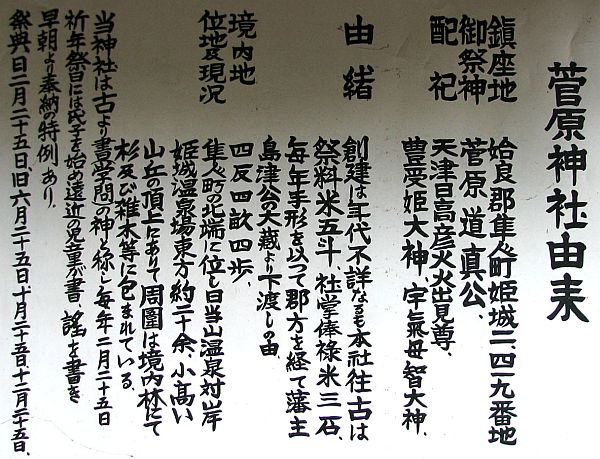 菅原神社由来
鎮座地 姶良郡隼人町姫城二、四一九番地
御祭神 菅原道真公、
配祀 天津日高彦火火出見尊、
豊受姫大神、宇氣母智大神、
由緒 創建は年代不詳なるも本社往古は
祭料米五斗、社掌俸禄米三石、
毎年手形を以つて郡方を経て藩主
島津公の大蔵より下渡しの由
境内地 四反四畝四歩、
位地及現況 隼人町の北端に位し日当山温泉対岸
姫城温泉場東方約二十余、小高い
山丘の頂上にありて周囲は境内林にて
杉及び雑木等に包まれている、
当神社は古より書学問の神と称し毎年二月二十五日
祈年祭日には氏子を始め遠近の児童が書、謡を書き
早朝より奉納の特例あり、
祭典日二月二十五日、旧六月二十五日十月二十五日十二月二十五日、